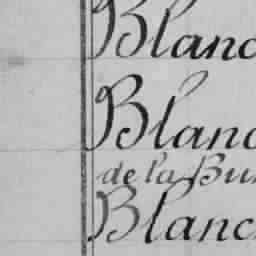 Blanc
Blanc
de la Bur
Blanc